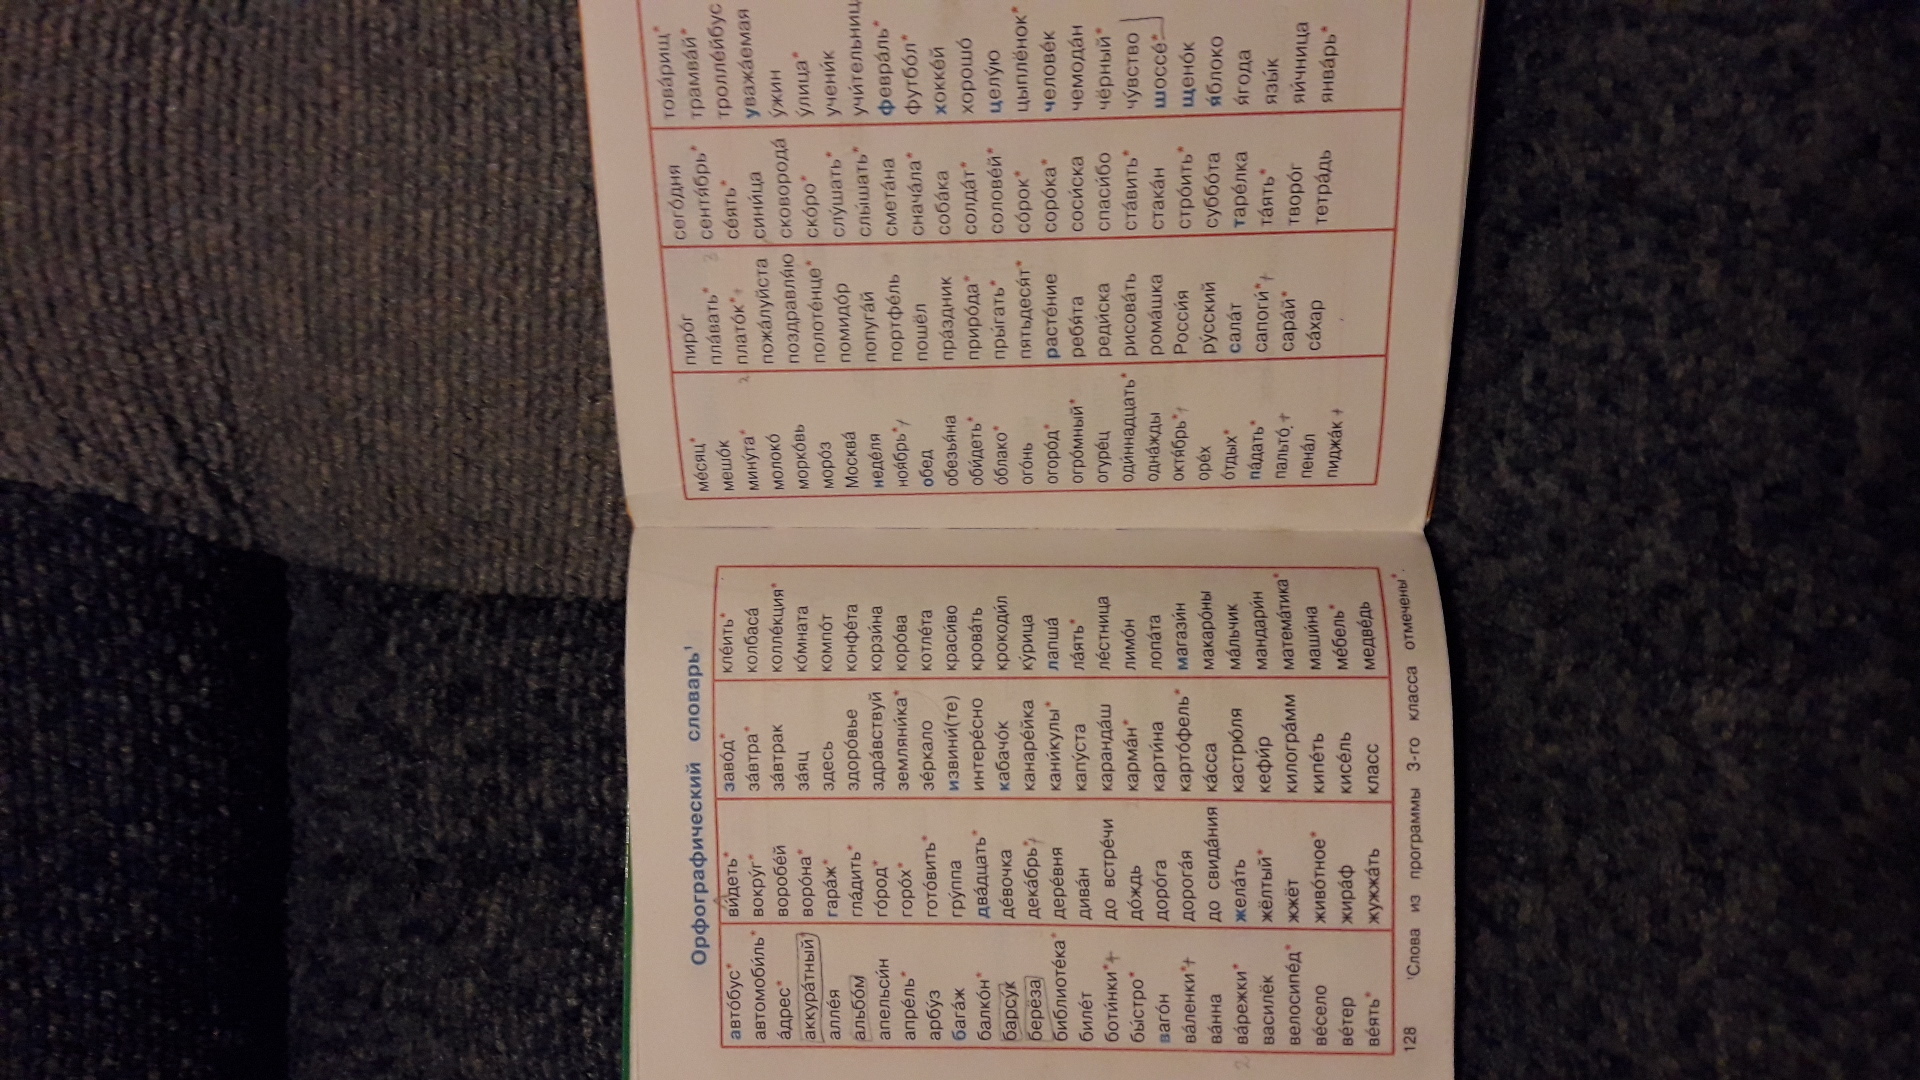 Орфографический словарь¹
а́втобус*
автомоби́ль*
а́дрес*
аккура́тный
алле́я
альбо́м
апельси́н
апре́ль*
арбу́з
бага́ж
балко́н*
барсу́к
берёза
библиоте́ка*
биле́т
боти́нки*+
бы́стро*
ваго́н
ва́ленки*+
ва́нна
2 ва́режки*
василёк
велосипе́д*
ве́село
ве́тер
ве́ять*
ви́деть*
вокру́г*
воробе́й
воро́на*
гара́ж*
гла́дить*
го́род*
горо́х*
гото́вить*
гру́ппа
два́дцать*
де́вочка
дека́брь*
дере́вня
дива́н
до встре́чи
до́ждь
доро́га
дорога́я
до свида́ния
жела́ть
жёлтый*
жжёт
живо́тное*
жира́ф
жужжа́ть
заво́д*
за́втра*
за́втрак
за́яц
здесь
здоро́вье
здра́вствуй
земляни́ка*
зе́ркало
извини́(те)
интере́сно
кабачо́к
канаре́йка
кани́кулы*
капу́ста
каранда́ш
карма́н*
карти́на
карто́фель*
ка́сса
кастрю́ля
кефи́р
килогра́мм
кипе́ть
кисе́ль
класс
кле́ить*
колбаса́
колле́кция*
ко́мната
компо́т
конфе́та
корзи́на
коро́ва
котле́та
краси́во
крова́ть
крокоди́л
ку́рица
лапша́
ла́ять*
ле́стница
лимо́н
лопа́та
магази́н
макаро́ны
ма́льчик
мандари́н
матема́тика*
маши́на
ме́бель*
медве́дь
128
¹Слова из программы 3-го класса отмечены*.
ме́сяц*
мешо́к
мину́та*
молоко́
морко́вь
моро́з
Москва́
неде́ля
ноя́брь*+
обе́д
обезья́на
оби́деть*
о́блако*
ого́нь
огоро́д*
огро́мный*
огуре́ц
оди́ннадцать*
одна́жды
октя́брь*+
оре́х
о́тдых*
па́дать*
пальто́ +
пена́л
пиджа́к +
пиро́г
пла́вать*
2 плато́к*+
пожа́луйста
поздравля́ю
полоте́нце*
помидо́р
попуга́й
портфе́ль
пошёл
пра́здник
приро́да*
пры́гать*
пятьдеся́т*
расте́ние
ребя́та
реди́ска
рисова́ть
рома́шка
Росси́я
ру́сский
сала́т
сапоги́*+
сара́й*
са́хар
сего́дня
3 сентя́брь*
се́ять*
сини́ца
сковорода́
ско́ро*
слу́шать*
слы́шать*
смета́на
снача́ла*
соба́ка
солда́т*
солове́й*
со́рок*
соро́ка*
соси́ска
спаси́бо
ста́вить*
стака́н
стро́ить*
суббо́та
таре́лка
та́ять*
творо́г
тетра́дь
това́рищ*
трамва́й*
тролле́йбус
уважа́емая
у́жин
у́лица*
учени́к
учи́тельница
февра́ль*
футбо́л*
хокке́й
хорошо́
целу́ю
цыплёнок*
челове́к
чемода́н
чёрный*
чу́вство
шоссе́*
щено́к
я́блоко
я́года
язы́к
яи́чница
янва́рь*